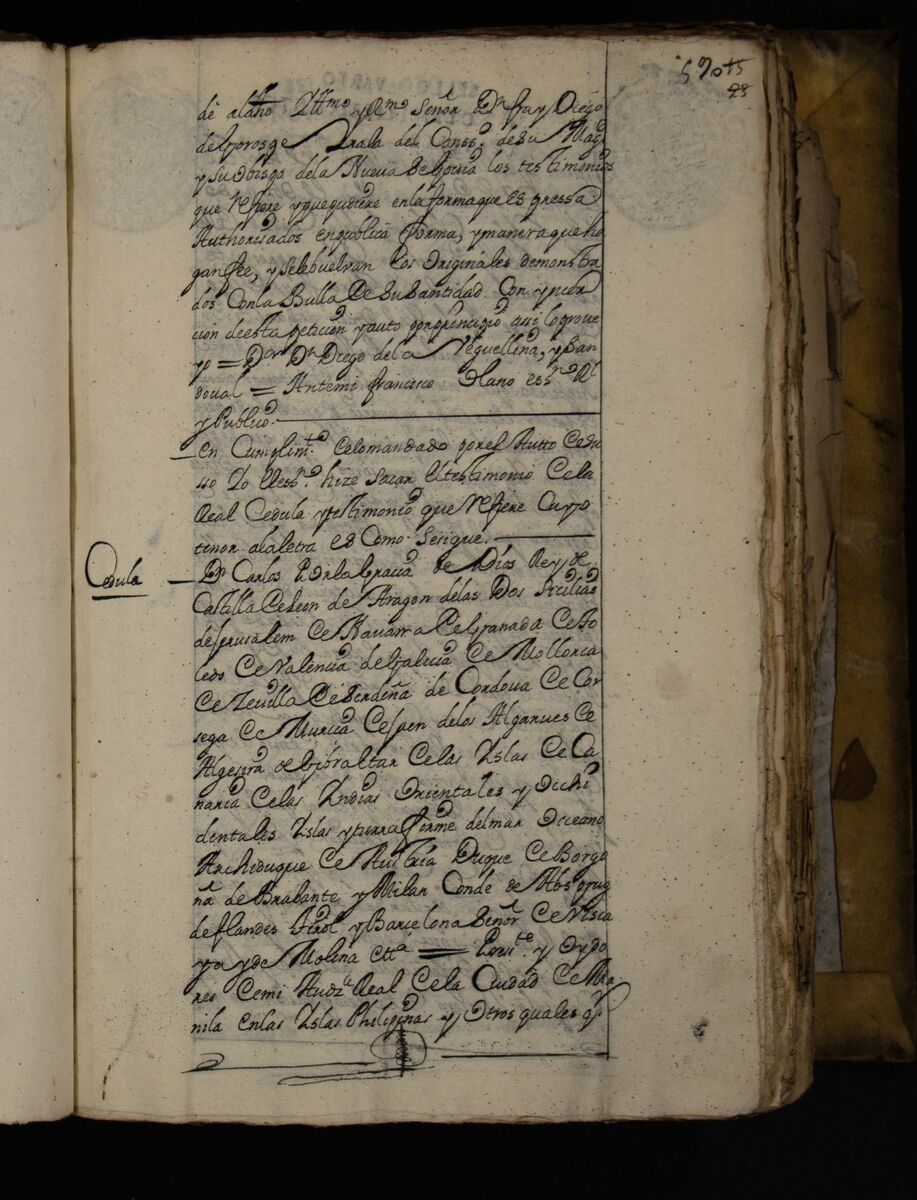 de a dho Ill^mo y R^mo Señor D^n fray Diego
de Gorospe Yrala del Conss^o de su Mag^d
y su obispo dela Nueva Segovia los testimonios
que refiere y que pidiere en la forma que expressa
Authorisados en publica forma, y manera que ha
gan fee, y se le buelvan los originales demonstra
dos con la Bulla De Su Santidad Con ynser
cion de esta peticion y auto por principio assi lo prove
yo = D^or D^n Diego dela Veguellina, y San
doual = Ante mi francisco Olano ess^no R^l
y Publico.
En Cumplim^to de lo mandado por el Autto de su
sso Yo el ess^no hize sacar el testimonio de la
Real Cedula y testimonio que refiere Cuyo
tenor a la letra es Como Se sigue.
Cedula
D^n Carlos Por la Gracia de Dios Rey de
Castilla de Leon de Aragon de las Dos Sicilias
de Jerusalem de Navarra de Granada de To
ledo de Valencia de Galicia de Mallorca
de Zevilla de Serdeña de Cordova de Cor
sega de Murcia de Jaen de los Algarves de
Algesira de Gibraltar de las Yslas de Ca
naria de las Yndias Orientales y Occhi
dentales Yslas y tierra firme del mar Occeano
Archiduque de Austria Duque de Borgo
ña de Brabante y Milan Conde de Abspurg
de flandes Tirol y Barcelona Señor de Visca
ya y de Molina ett^a = Press^te y Oydo
res de mi Aud^a Real de la Ciudad de Ma
nila en las Yslas Philipinas y Otros quales q^r